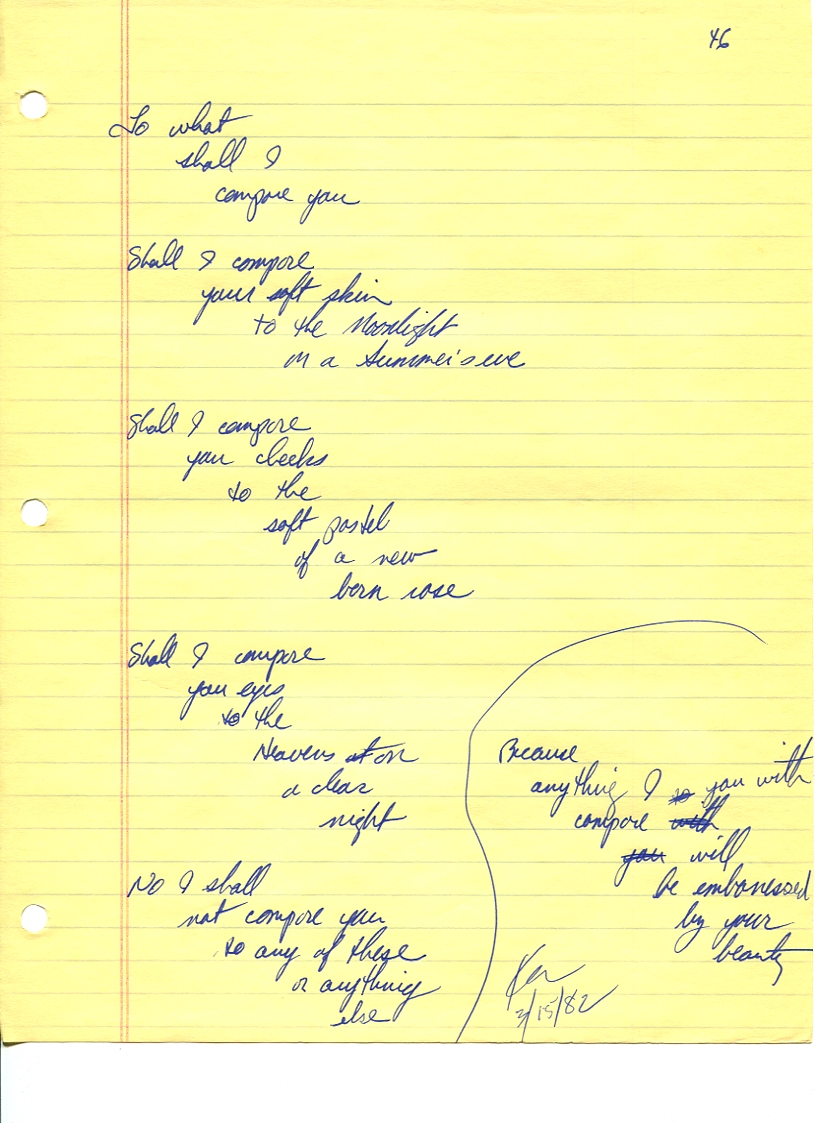 46
To what
shall I
compare you
Shall I compare
your soft skin
to the Moonlight
on a Summer's eve
Shall I compare
your cheeks
to the
soft pastel
of a new
born rose
Shall I compare
your eyes
to the
Heavens at on
a clear
night
No I shall
not compare you
to any of these
or anything
else
Because
anything I you with
compare with
you will
be embarressed
by your
beauty
Ken
3/15/82